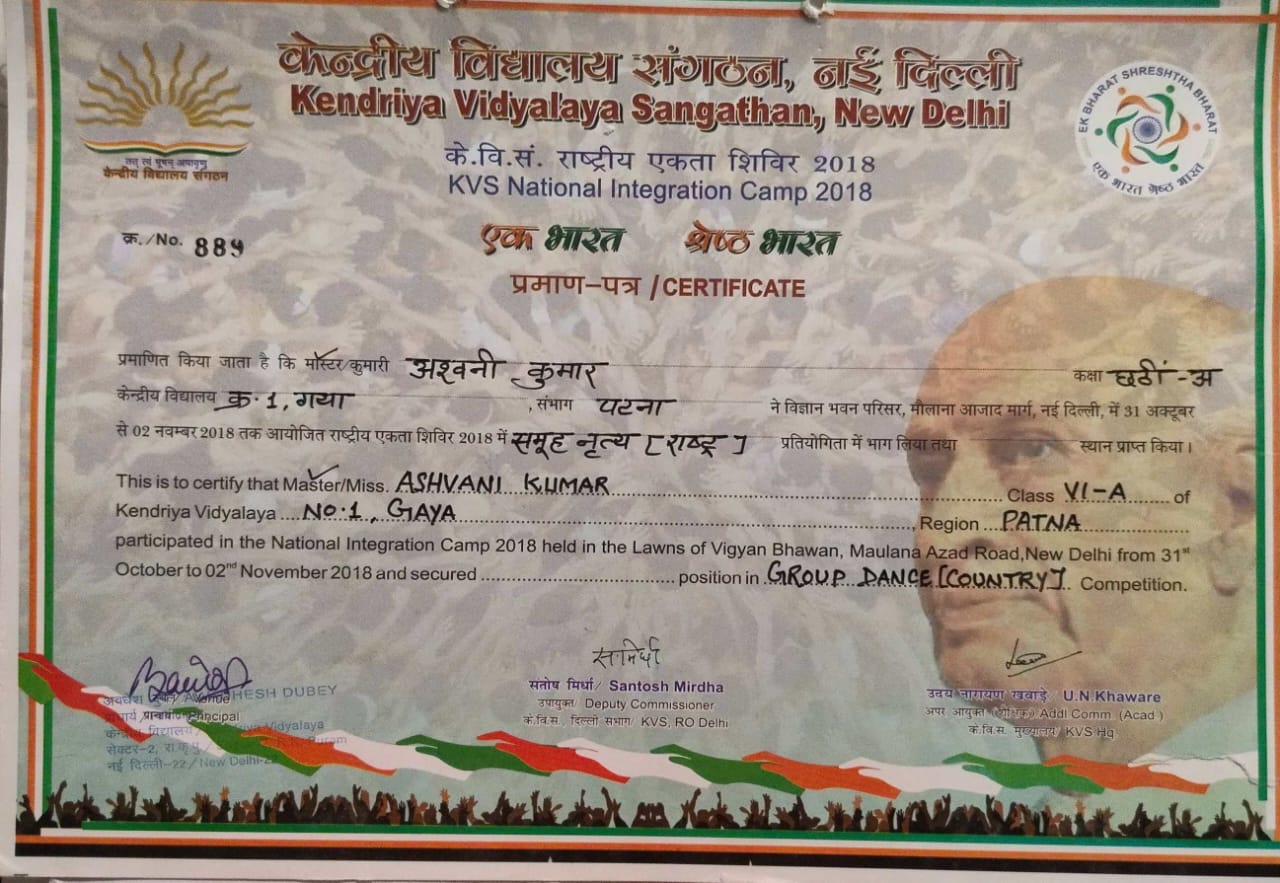 केन्द्रीय विद्यालय संगठन, नई दिल्ली
Kendriya Vidyalaya Sangathan, New Delhi
तत् त्वं पूषन् अपावृणु
केन्द्रीय विद्यालय संगठन
EK BHARAT SHRESHTHA BHARAT
एक भारत श्रेष्ठ भारत
के.वि.सं. राष्ट्रीय एकता शिविर 2018
KVS National Integration Camp 2018
क्र./No. 889
एक भारत श्रेष्ठ भारत
प्रमाण-पत्र /CERTIFICATE
प्रमाणित किया जाता है कि मास्टर/कुमारी अश्वनी कुमार कक्षा छठीं-अ
केन्द्रीय विद्यालय क्र.1, गया ,संभाग पटना ने विज्ञान भवन परिसर, मौलाना आजाद मार्ग, नई दिल्ली, में 31 अक्टूबर
से 02 नवम्बर 2018 तक आयोजित राष्ट्रीय एकता शिविर 2018 में समूह नृत्य [राष्ट्र] प्रतियोगिता में भाग लिया तथा स्थान प्राप्त किया।
This is to certify that Master/Miss. ASHVANI KUMAR Class VI-A of
Kendriya Vidyalaya No.1, GAYA , Region PATNA
participated in the National Integration Camp 2018 held in the Lawns of Vigyan Bhawan, Maulana Azad Road,New Delhi from 31st
October to 02nd November 2018 and secured position in GROUP DANCE [COUNTRY]. Competition.
HESH DUBEY
प्राचार्य Principal
Vidyalaya
सेक्टर-2,
नई दिल्ली-22 / New Delhi-22
संतोष मिर्धा/ Santosh Mirdha
उपायुक्त/ Deputy Commissioner
के.वि.स., दिल्ली संभाग/ KVS, RO Delhi
उदय नारायण खवाड़े/ U.N.Khaware
अपर आयुक्त Addl Comm (Acad )
के.वि.स. मुख्यालय/ KVS Hq.